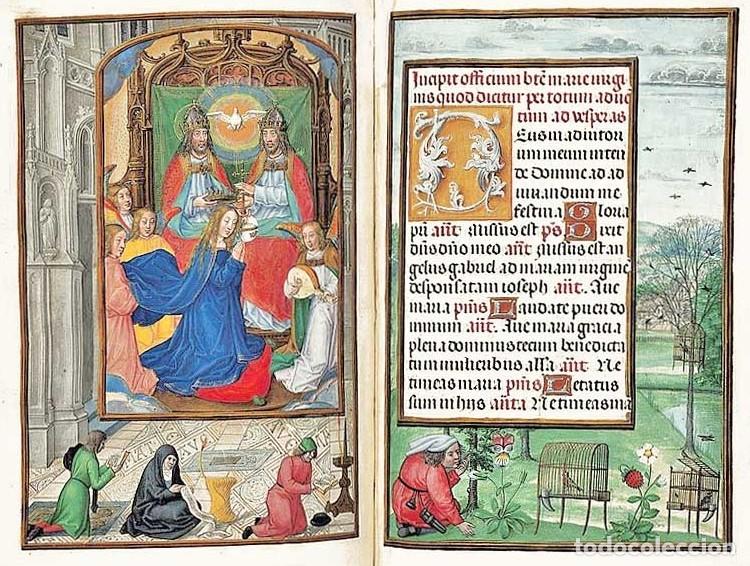 Incipit officium bte marie virgi
nis quod dicitur per totum aduē
tum ad vesperas
Deus in adiutor
ium meum inten
de Domine ad ad
iuuandum me
festina Gloria
pri añt Missus est ps Dixit
dñs dño meo añt Missus est an
gelus gabriel ad mariam virginē
desponsatam ioseph añt Aue
maria pmus Laudate pueri do
minum añt Aue maria gracia
plena dominus tecum benedicta
tu in mulieribus alla añt Ne
timeas maria pmus Letatus
sum in hijs anta Ne timeas ma
todocoleccion